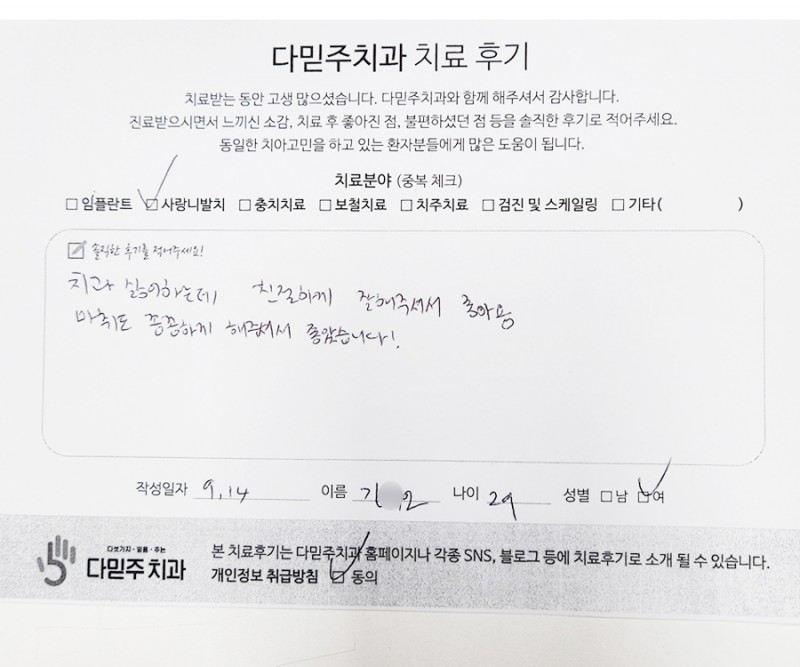 다믿주치과 치료 후기
치료받는 동안 고생 많으셨습니다. 다믿주치과와 함께 해주셔서 감사합니다.
진료받으시면서 느끼신 소감, 치료 후 좋아진 점, 불편하셨던 점 등을 솔직한 후기로 적어주세요.
동일한 치아고민을 하고 있는 환자분들에게 많은 도움이 됩니다.
치료분야 (중복 체크)
임플란트 사랑니발치 충치치료 보철치료 치주치료 검진 및 스케일링 기타( )
솔직한 후기를 적어주세요!
치과 싫어하는데 친절하게 잘해주셔서 좋아용
마취도 꼼꼼하게 해주셔서 좋았습니다!
작성일자 9.14 이름 나이 29 성별 남 여
다섯가지·믿음·주는
다믿주치과
본 치료후기는 다믿주치과 홈페이지나 각종 SNS, 블로그 등에 치료후기로 소개 될 수 있습니다.
개인정보 취급방침 동의